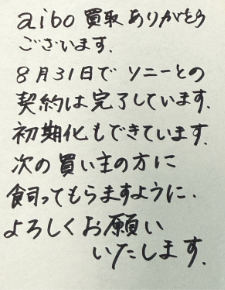 aibo 買取ありがとう
ございます.
8月31日でソニーとの
契約は完了しています.
初期化もできています.
次の買い主の方に
飼ってもらえますように、
よろしくお願い
いたします.